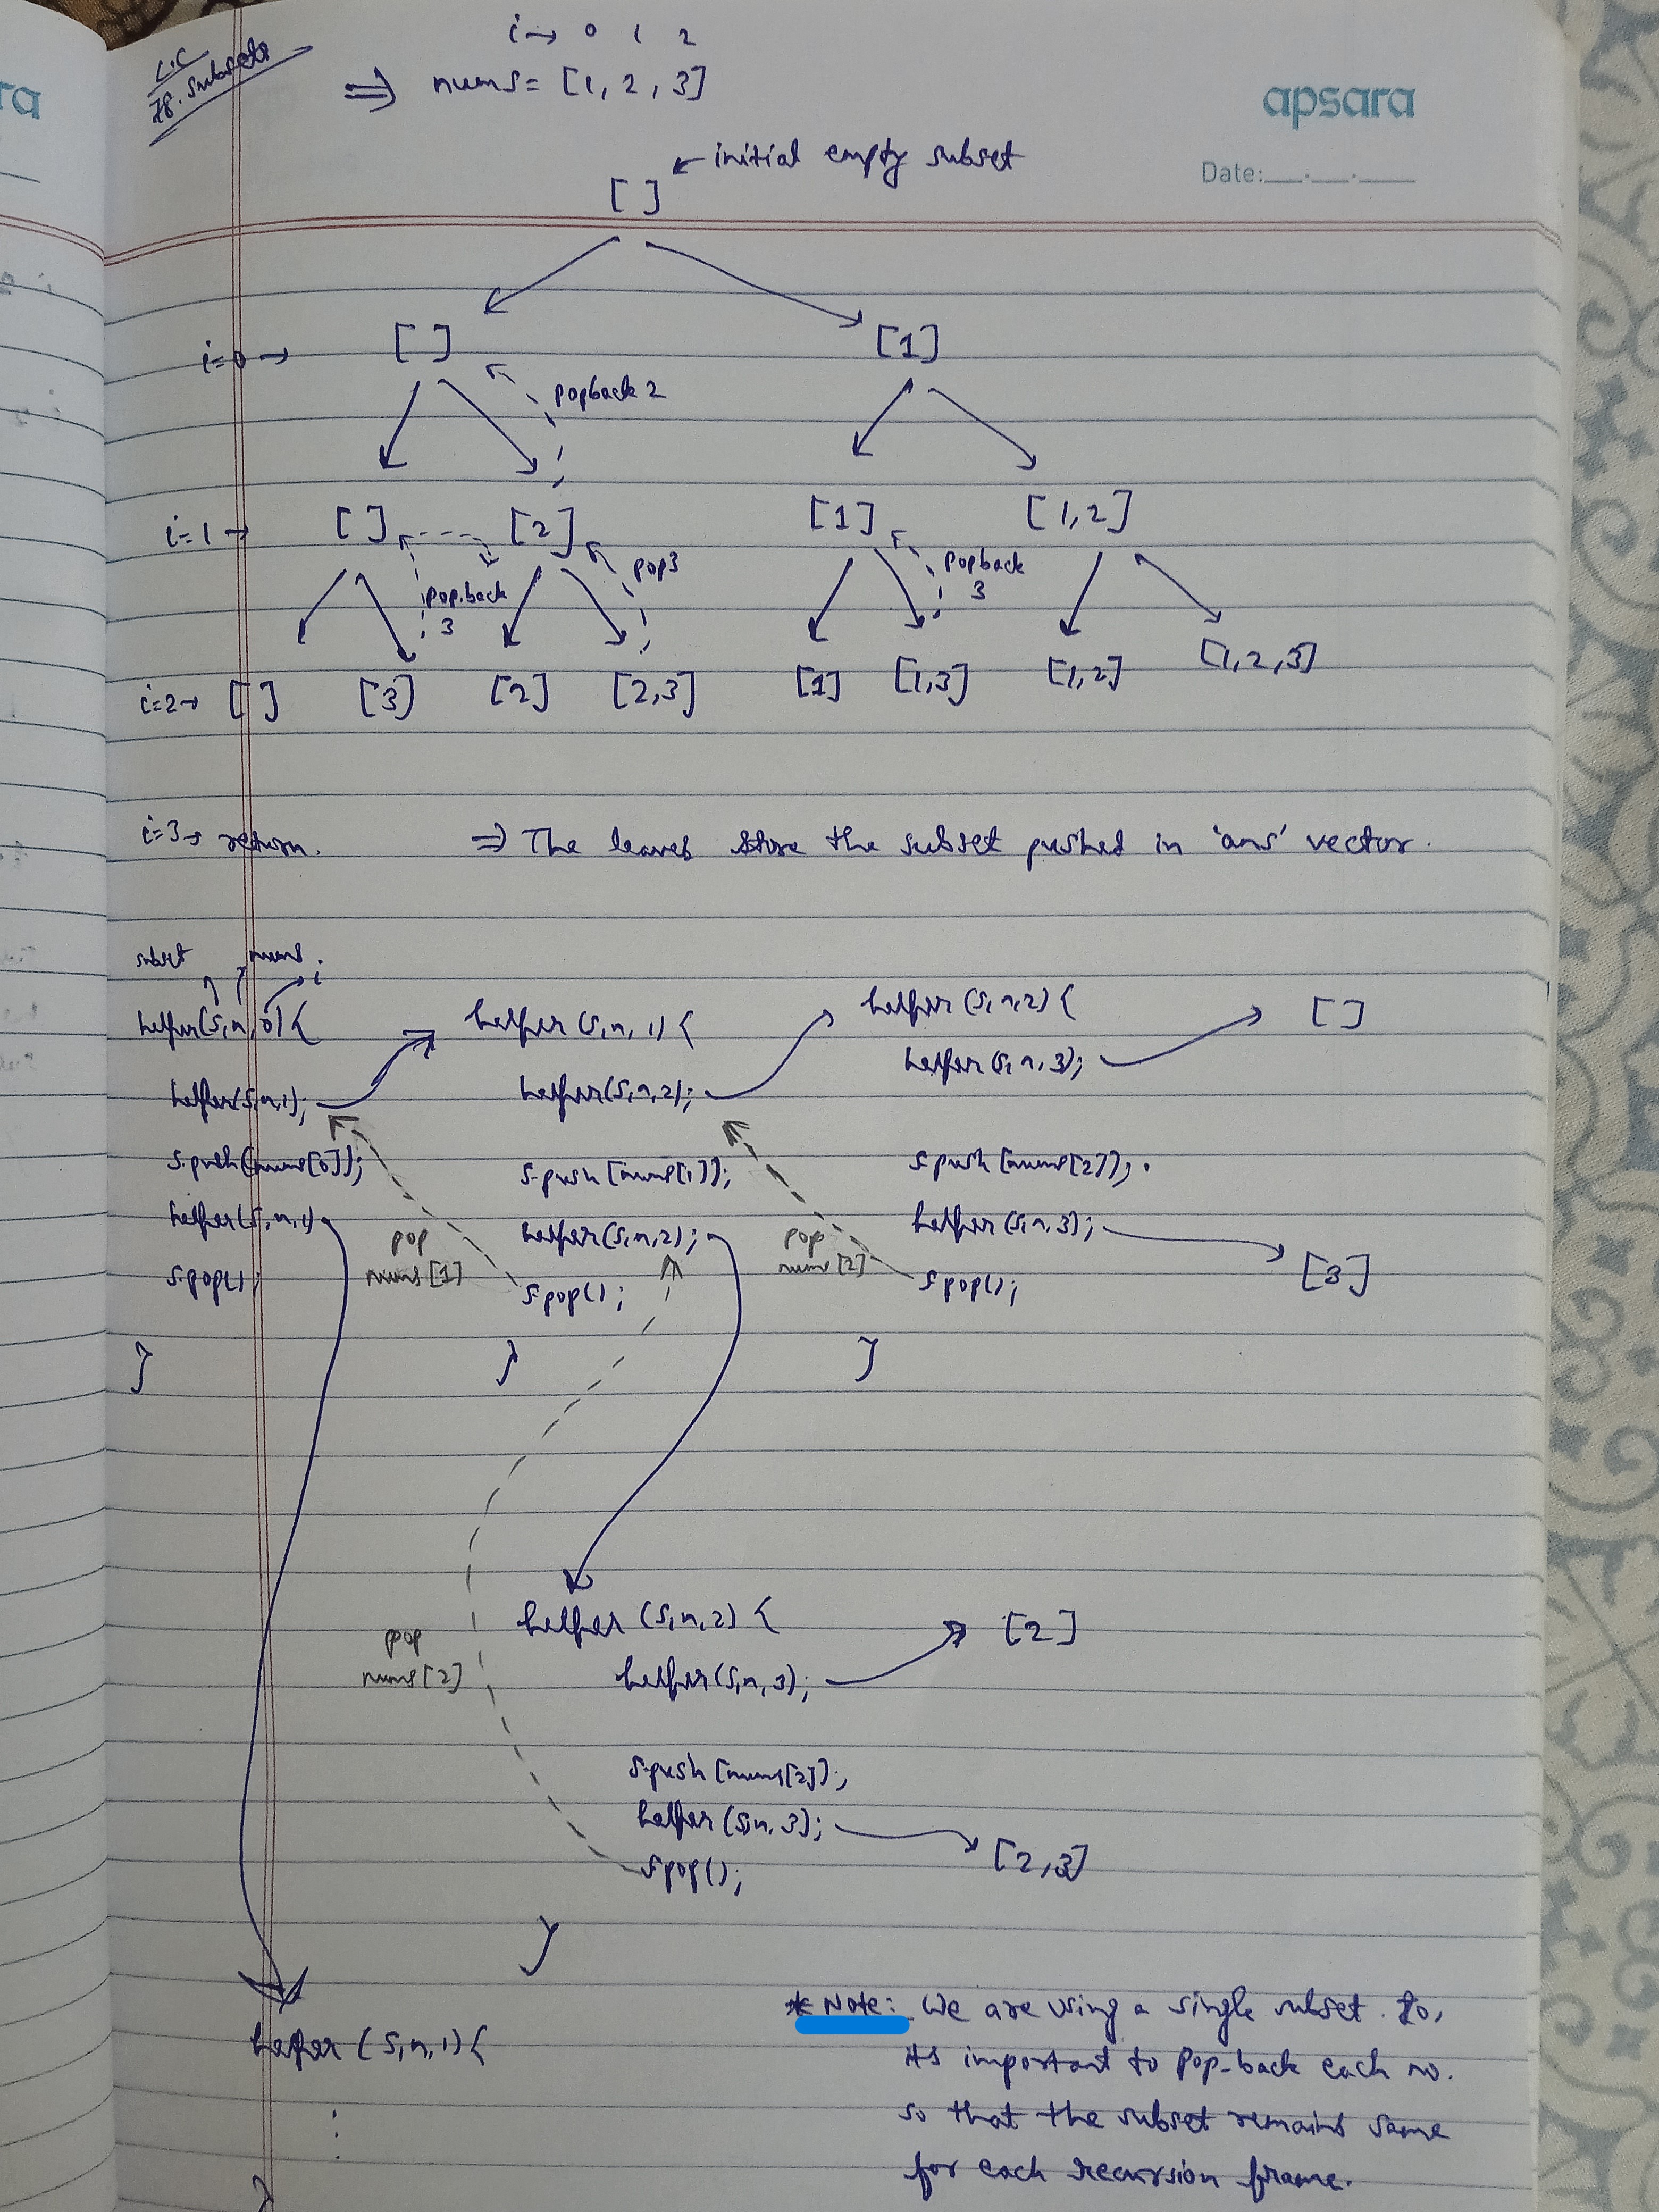 L.C
78. Subsets
i → 0 1 2
⇒ nums = [1, 2, 3]
apsara
Date:__.__.__
← initial empty subset
[ ]
i=0 → [ ] [1]
popback 2
i=1 → [ ] [2] [1] [1,2]
pop.back 3
pop 3
popback 3
i=2 → [ ] [3] [2] [2,3] [1] [1,3] [1,2] [1,2,3]
i=3 → return. ⇒ The leaves store the subset pushed in 'ans' vector.
subset nums i
helper(s,n,0){
helper(s,n,1);
s.push(nums[0]);
helper(s,n,1)
s.pop();
}
helper (s,n,1){
helper(s,n,2);
s.push(nums[1]);
helper(s,n,2);
s.pop();
}
pop
nums[1]
helper (s,n,2){
helper(s,n,3);
[ ]
s.push(nums[2]);
helper(s,n,3);
[3]
s.pop();
}
pop
nums[2]
helper (s,n,2){
[2]
helper(s,n,3);
s.push(nums[2]);
helper(s,n,3);
[2,3]
s.pop();
}
pop
nums[2]
helper (s,n,1){
⋮
}
* Note: We are using a single subset. So,
its important to Pop-back each no.
so that the subset remains same
for each recursion frame.